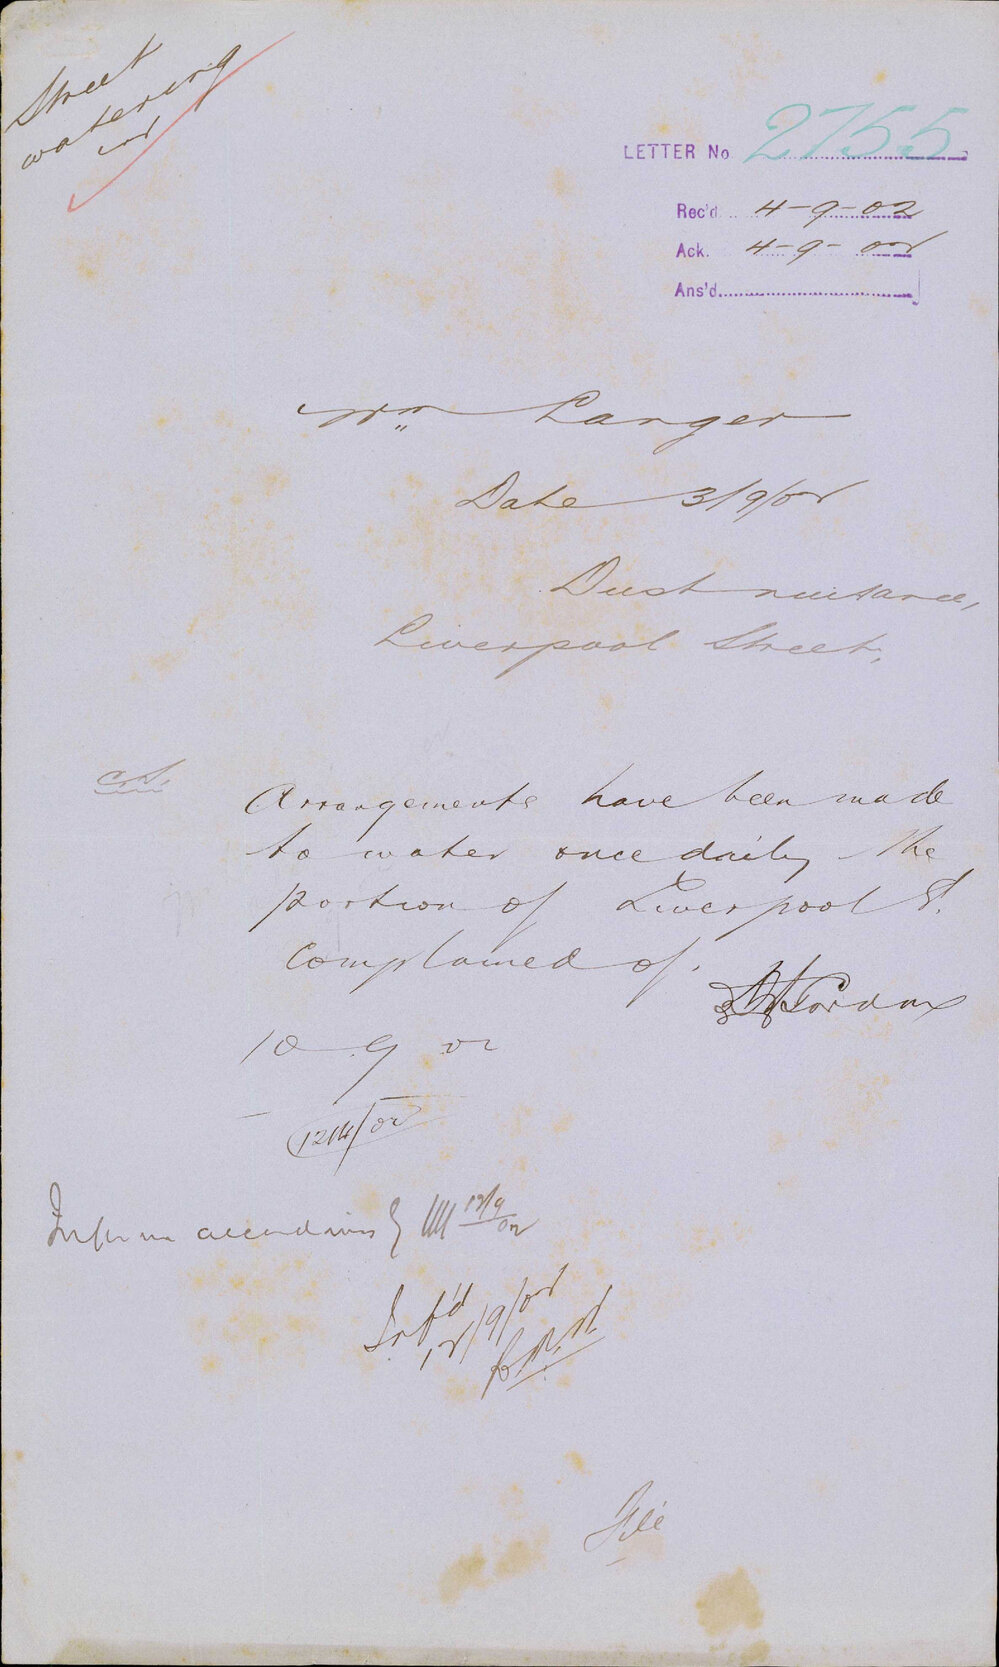 Street
watering
LETTER No 2755
Rec'd. 4-9-02
Ack. 4-9-02
Ans'd.
Wm Langer
Date 3/9/02
Dust nuisance,
Liverpool Street.
Arrangements have been made
to water once daily the
portion of Liverpool St.
complained of.
10 9 02
1214/02
Inform accordingly 12/9/02
Inf'd
12/9/02
File